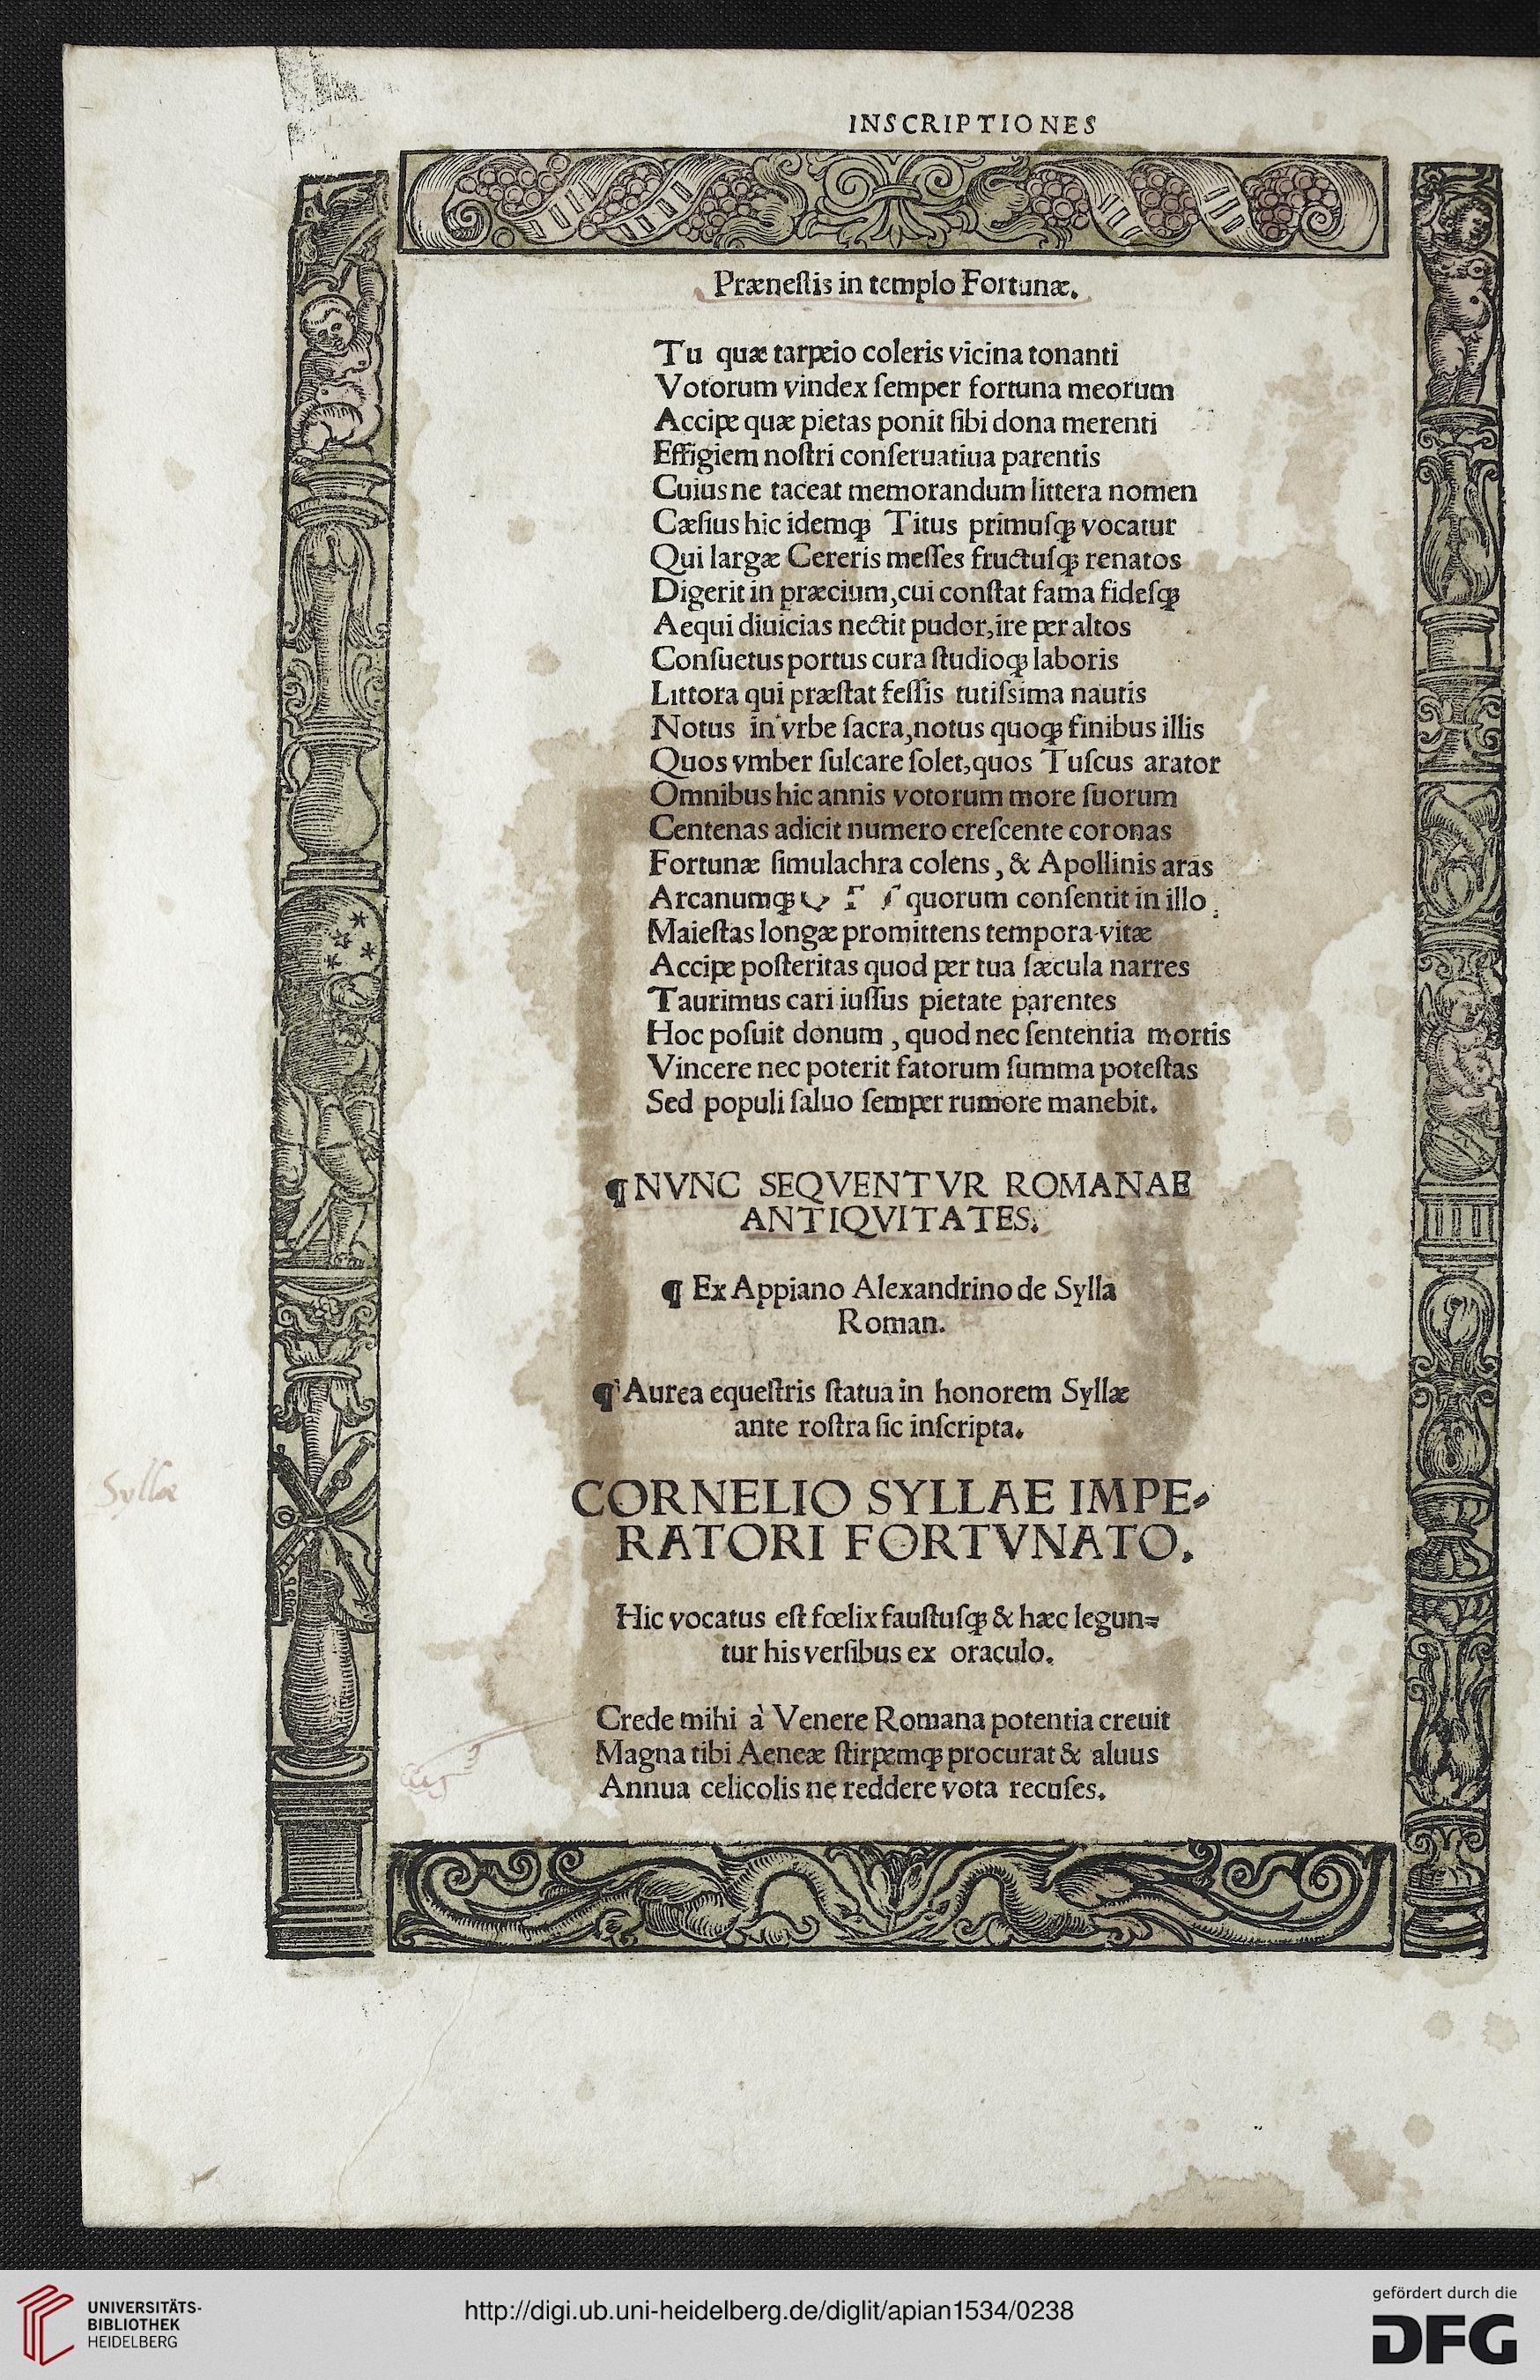 INSCRIPTIONES
Præneſtis in templo Fortunæ.
Tu quæ tarpeio coleris vicina tonanti
Votorum vindex ſemper fortuna meorum
Accipe quæ pietas ponit ſibi dona merenti
Effigiem noſtri conſeruatiua parentis
Cuius ne taceat memorandum littera nomen
Cæſius hic idemqꝫ Titus primuſqꝫ vocatur
Qui largæ Cereris meſſes fructuſqꝫ renatos
Digerit in præcium, cui conſtat fama fideſqꝫ
Aequi diuicias nectit pudor, ire per altos
Conſuetus portus cura ſtudioqꝫ laboris
Littora qui præſtat feſſis tutiſsima nautis
Notus in vrbe ſacra, notus quoqꝫ finibus illis
Quos vmber ſulcare ſolet, quos Tuſcus arator
Omnibus hic annis votorum more ſuorum
Centenas adicit numero creſcente coronas
Fortunæ ſimulachra colens, & Apollinis aras
Arcanumqꝫ quorum conſentit in illo
Maieſtas longæ promittens tempora vitæ
Accipe poſteritas quod per tua ſæcula narres
Taurimus cari iuſſus pietate parentes
Hoc poſuit donum, quod nec ſententia mortis
Vincere nec poterit fatorum ſumma poteſtas
Sed populi ſaluo ſemper rumore manebit.
¶ NVNC SEQVENTVR ROMANAE
ANTIQVITATES.
¶ Ex Appiano Alexandrino de Sylla
Roman.
¶ Aurea equeſtris ſtatua in honorem Syllæ
ante roſtra ſic inſcripta.
CORNELIO SYLLAE IMPE⸗
RATORI FORTVNATO.
Syllæ
Hic vocatus eſt fœlix fauſtuſqꝫ & hæc legun⸗
tur his verſibus ex oraculo.
Crede mihi à Venere Romana potentia creuit
Magna tibi Aeneæ ſtirpemqꝫ procurat & aluus
Annua celicolis ne reddere vota recuſes.
UNIVERSITÄTS-
BIBLIOTHEK
HEIDELBERG
http://digi.ub.uni-heidelberg.de/diglit/apian1534/0238
gefördert durch die
DFG